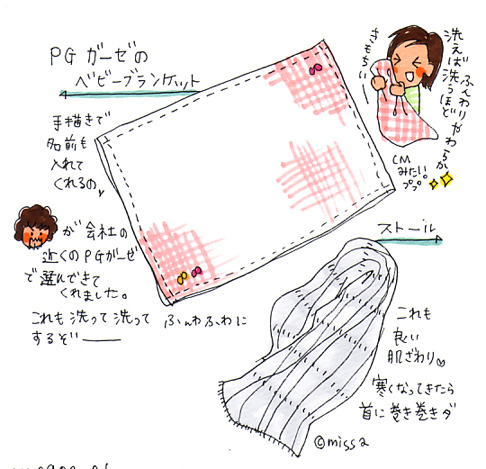 PGガーゼの
ベビーブランケット
手描きで
名前も
入れて
くれるの♪
洗えば洗うほど
ふんわりやわらか
きもちいい
CM
みたい。
ププ
が会社の
近くのPGガーゼ
で選んできて
くれました。
これも洗って洗って
ふわふわに
するぞー
ストール
これも
良い
肌ざわり♡
寒くなってきたら
首に巻き巻きダ
©missa